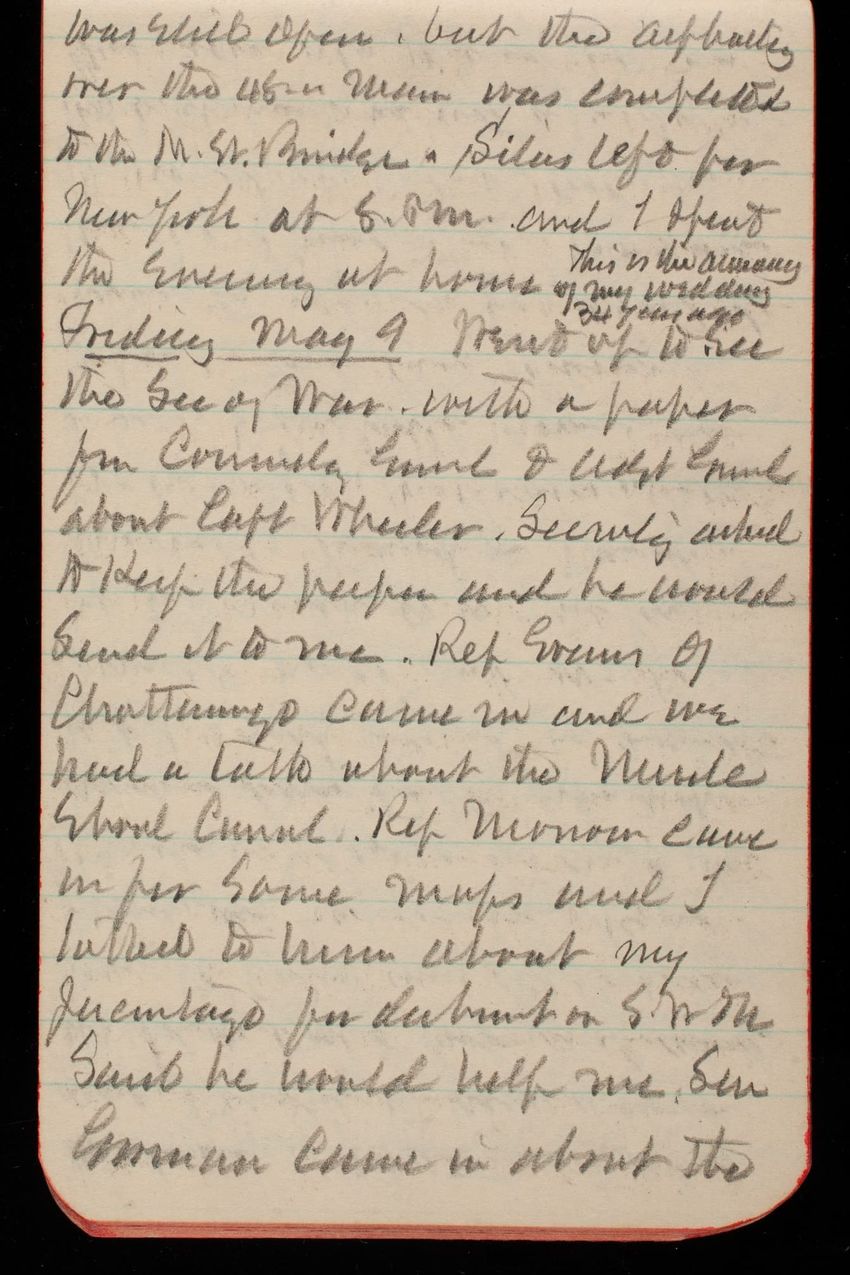 was still open. but the asphalting
over the 48 in main was completed
to the M. St. Bridge. Silas left for
New York at 8. P.m. and I spent
the Evening at home
This is the anniversary
of my wedding
34 years ago
Friday May 9 Went up to See
the Sec of War. with a paper
from Genl & Adjt Genl
about Capt Wheeler. Secretary asked
to Keep the paper and he would
Send it to me. Rep Evans of
Chattanooga came in and we
had a talk about the Muscle
Shoal Canal. Rep Morrow came
in for Some maps and I
talked to him about my
percentage for on S.
Said he would help me. Sen
Gorman came in about the